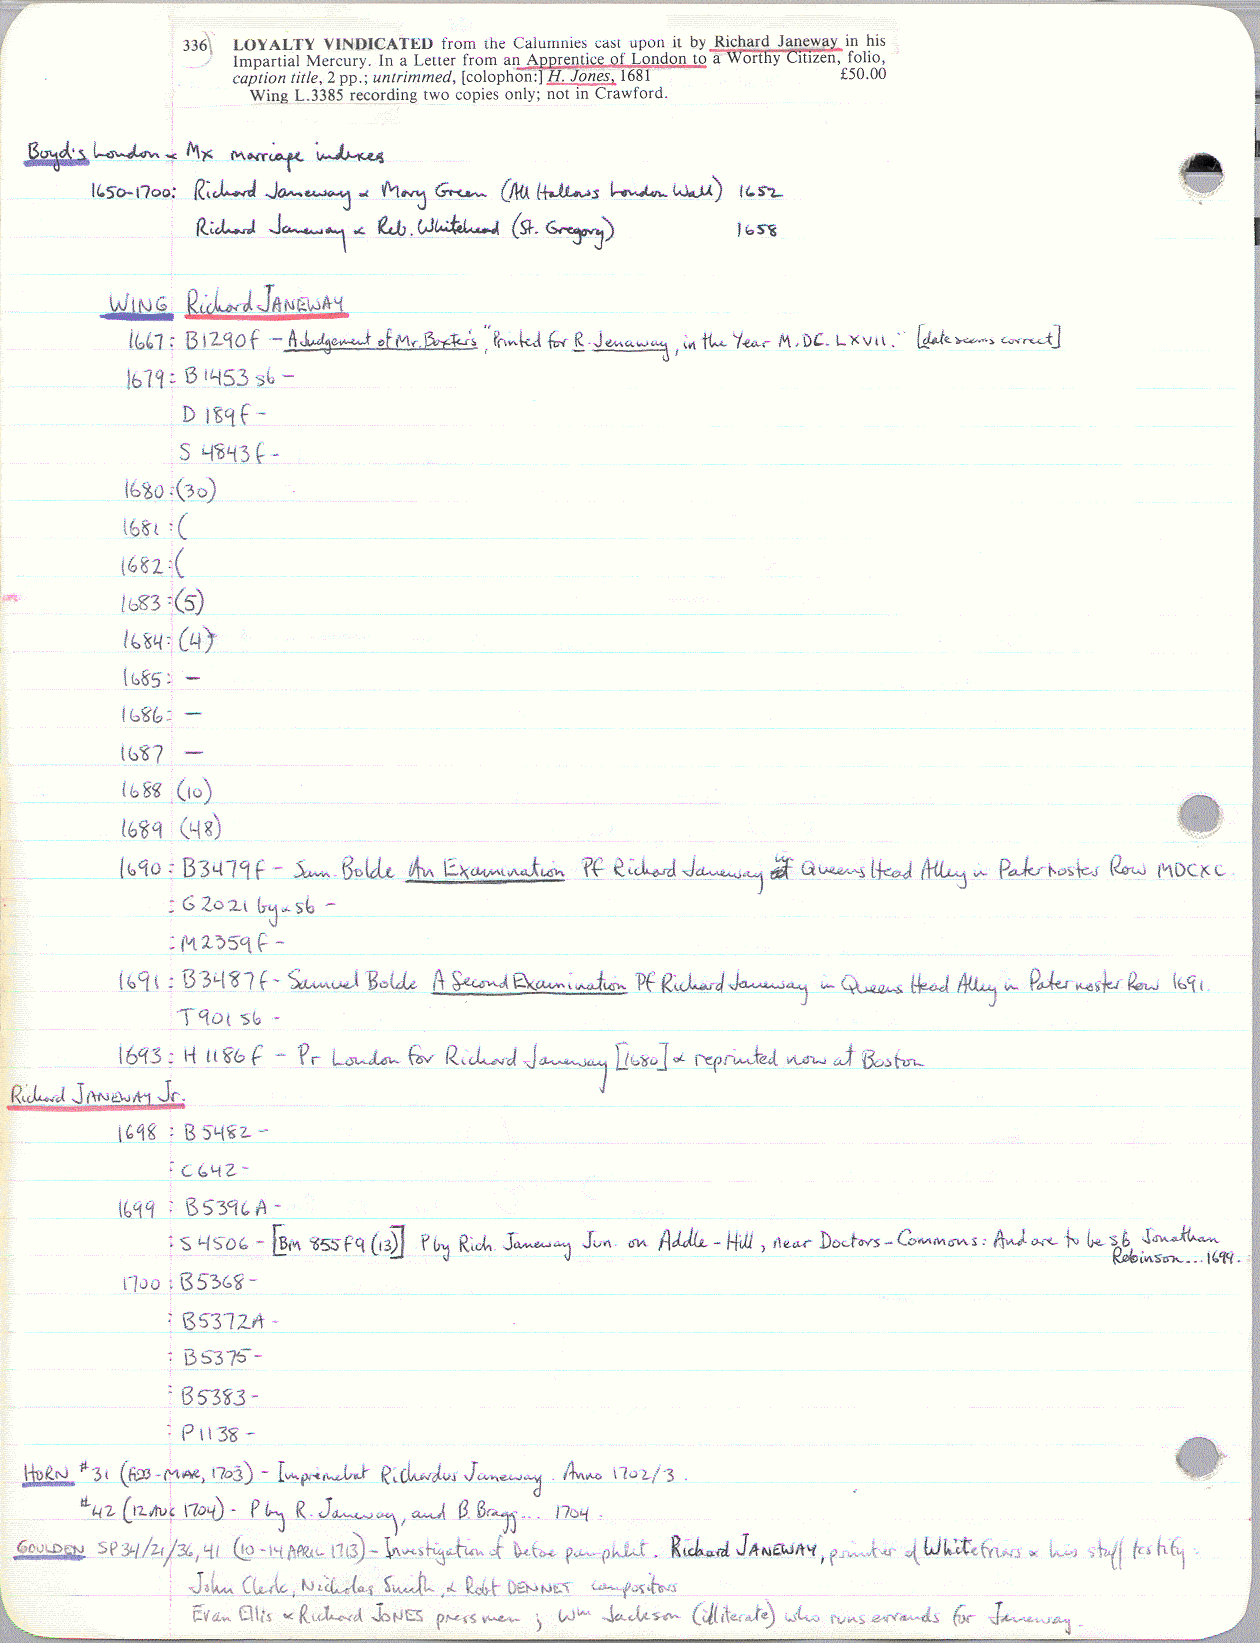 336 LOYALTY VINDICATED from the Calumnies cast upon it by Richard Janeway in his
Impartial Mercury. In a Letter from an Apprentice of London to a Worthy Citizen, folio,
caption title, 2 pp.; untrimmed, [colophon:] H. Jones, 1681 £50.00
Wing L.3385 recording two copies only; not in Crawford.
Boyd's London & Mx marriage indexes
1650-1700: Richard Janeway & Mary Green (All Hallows London Wall) 1652
Richard Janeway & Reb. Whitehead (St. Gregory) 1658
WING Richard JANEWAY
1667: B1290f - A Judgement of Mr. Baxter's, "Printed for R. Jenaway, in the Year M.DC.LXVII." [date seems correct]
1679: B1453 sb -
D 189f -
S 4843f -
1680: (30)
1681: (
1682: (
1683: (5)
1684: (4)
1685: -
1686: -
1687 -
1688 (10)
1689 (48)
1690: B3479f - Sam. Bolde An Examination Pf Richard Janeway in Queens Head Alley in Paternoster Row MDCXC.
: G2021 by & sb -
: M2359f -
1691: B3487f - Samuel Bolde A Second Examination Pf Richard Janeway in Queens Head Alley in Paternoster Row 1691.
T901 sb -
1693: H1186f - Pr London for Richard Janeway [1680] & reprinted now at Boston
Richard JANEWAY Jr.
1698: B5482 -
: C642 -
1699: B5396A -
: S4506 - [Bm 855 f9 (13)] P by Rich. Janeway Jun. on Addle-Hill, near Doctors-Commons: And are to be sb Jonathan
Robinson...1699.
1700: B5368 -
: B5372A -
: B5375 -
: B5383 -
: P1138 -
HORN #31 (FEB-MAR, 1703) - Impremebat Richardus Janeway. Anno 1702/3.
#42 (12 AUG 1704) - P by R. Janeway, and B. Bragg... 1704.
GOULDEN SP34/21/36,41 (10-14 APRIL 1713) - Investigation of Defoe pamphlet. Richard JANEWAY, printer of Whitefriars & his staff testify:
John Clerk, Nicholas Smith, & Robt DENNET compositors
Evan Ellis & Richard JONES pressmen; Wm Jackson (illiterate) who runs errands for Janeway.